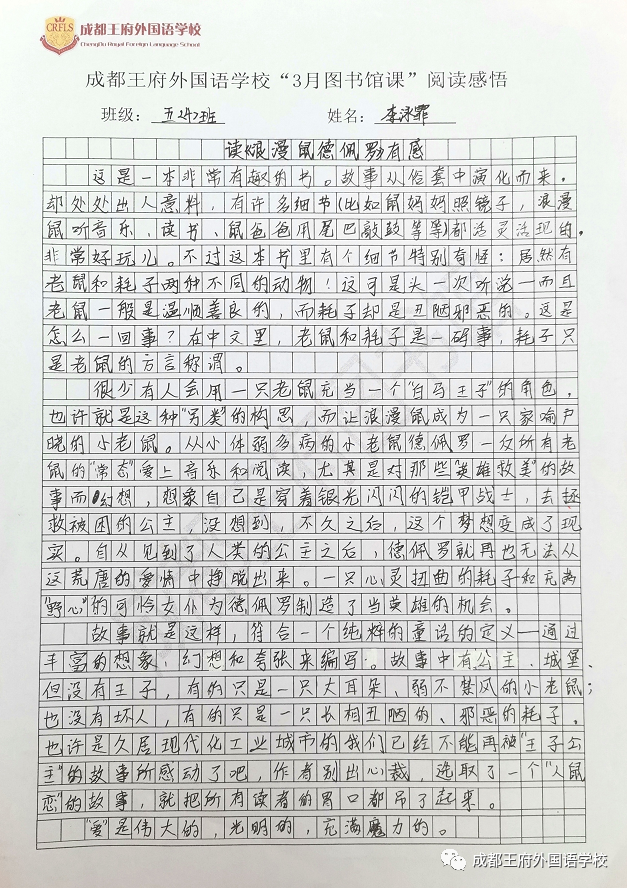 CRFLS
成都王府外国语学校
Chengdu Royal Foreign Language School
成都王府外国语学校“3月图书馆课”阅读感悟
班级：五2班 姓名：李泳霏
读《浪漫鼠德佩罗》有感
这是一本非常有趣的书。故事从俗套中演化而来，
却处处出人意料，有许多细节(比如鼠妈妈照镜子，浪漫
鼠听音乐、读书、鼠爸爸用尾巴敲鼓等等)都活灵活现的，
非常好玩儿。不过这本书里有个细节特别奇怪：居然有
老鼠和耗子两种不同的动物！这可是头一次听说—而且
老鼠一般是温顺善良的，而耗子却是丑陋邪恶的。这是
怎么一回事？在中文里，老鼠和耗子是一码事，耗子只
是老鼠的方言称谓。
很少有人会用一只老鼠充当一个“白马王子”的角色，
也许就是这种“另类”的构思 而让浪漫鼠成为一只家喻户
晓的小老鼠。从小体弱多病的小老鼠德佩罗一反所有老
鼠的“常态”爱上音乐和阅读，尤其是对那些“英雄救美”的故
事而幻想，想象自己是穿着银光闪闪的铠甲战士，去拯
救被困的公主，没想到，不久之后，这个梦想变成了现
实。自从见到了人类的公主之后，德佩罗就再也无法从
这荒唐的爱情中挣脱出来。一只心灵扭曲的耗子和充满
“野心”的可怜女仆为德佩罗制造了当英雄的机会。
故事就是这样，符合一个纯粹的童话的定义—通过
丰富的想象、幻想和夸张来编写。故事中有公主、城堡、
但没有王子，有的只是一只大耳朵、弱不禁风的小老鼠；
也没有坏人，有的只是一只长相丑陋的、邪恶的耗子。
也许是久居现代化工业城市的我们已经不能再被“王子公
主”的故事所感动了吧，作者别出心裁，选取了一个“人鼠
恋”的故事，就把所有读者的胃口都吊了起来。
“爱”是伟大的，光明的，充满魔力的。
成都王府外国语学校